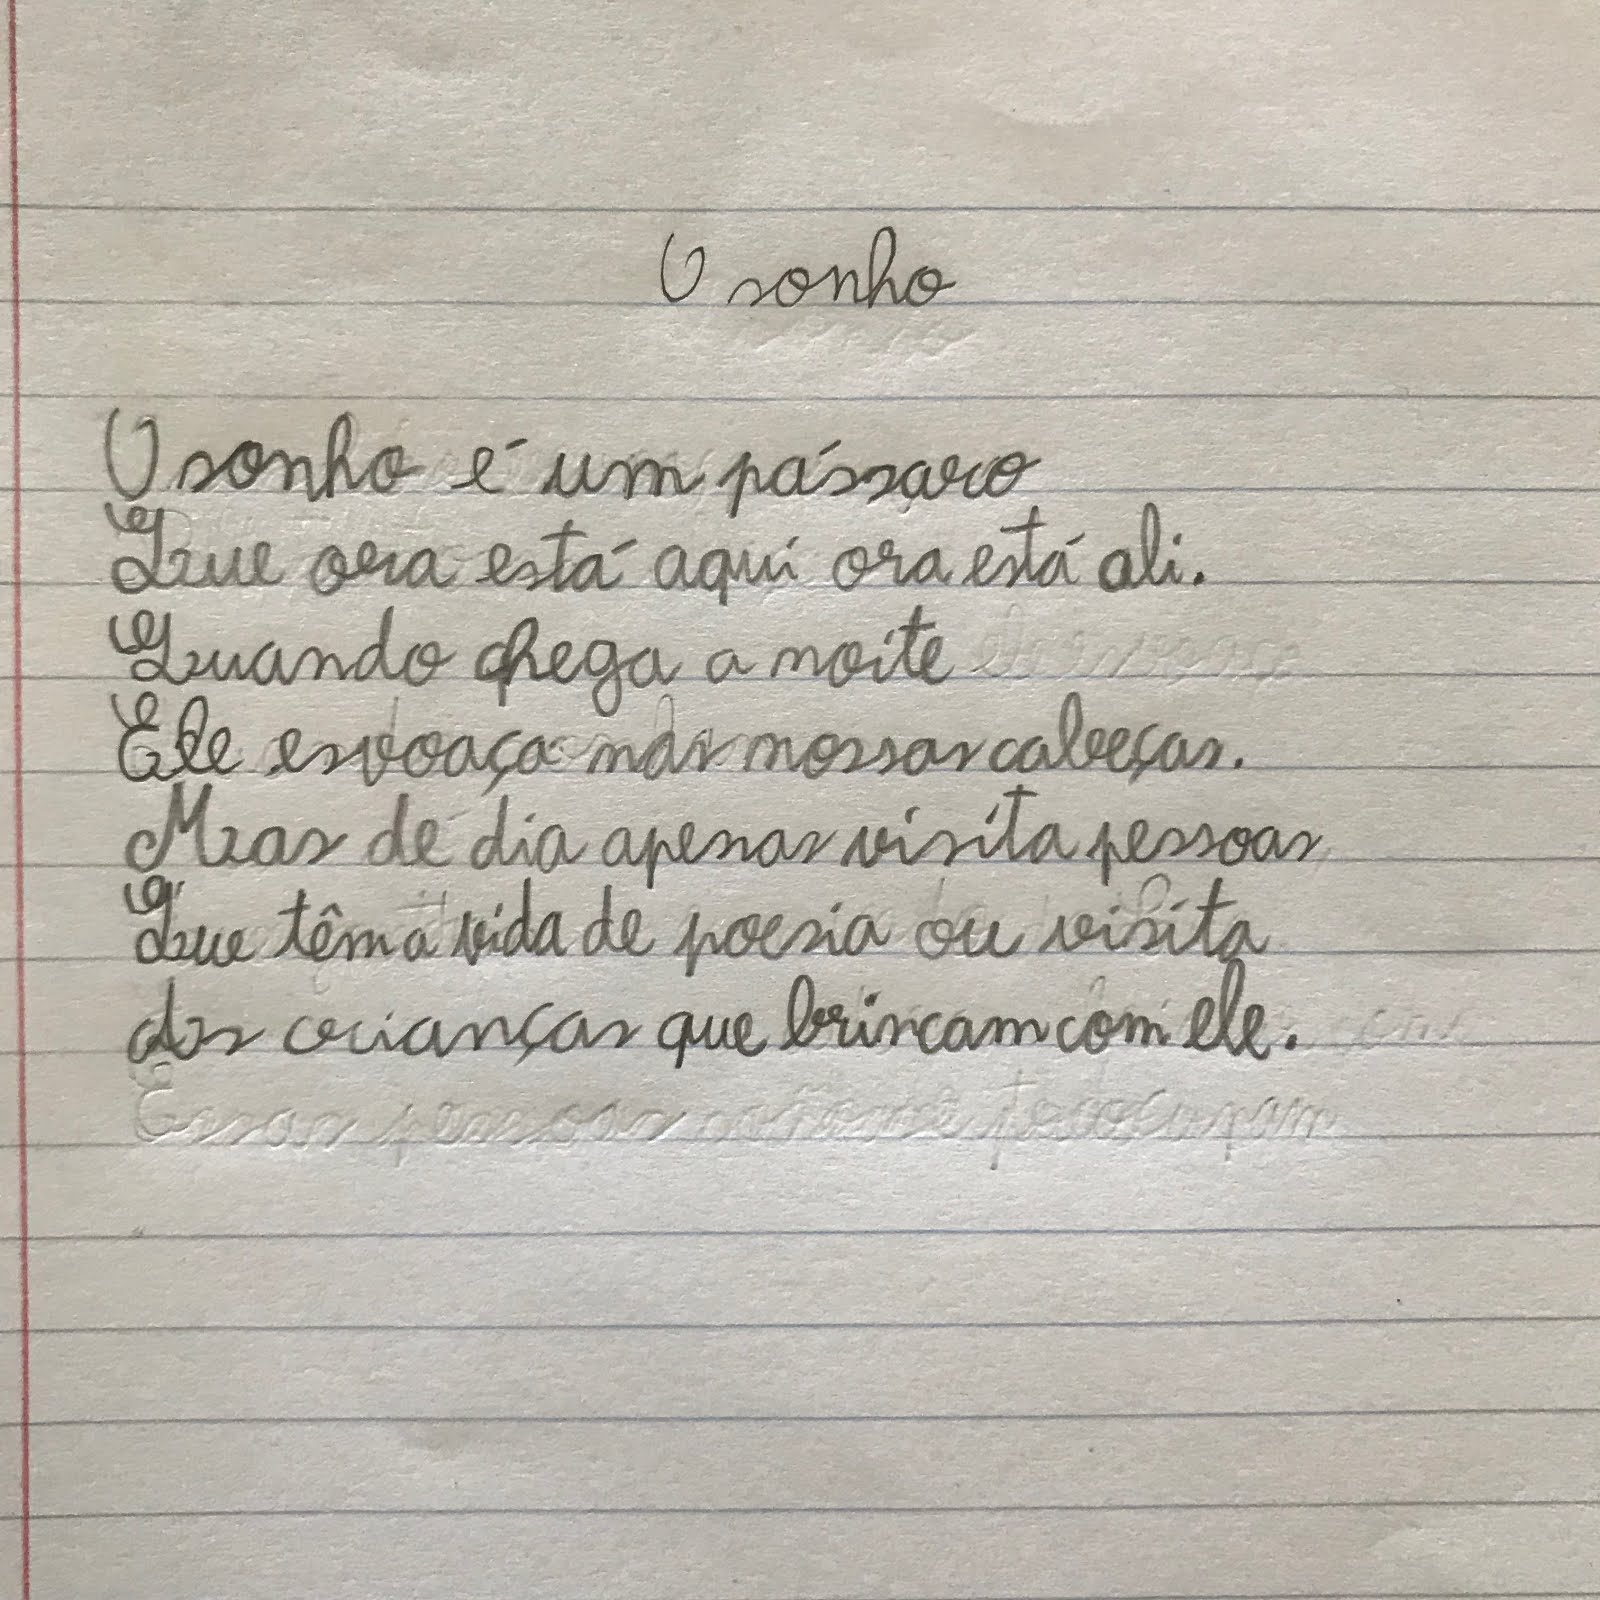 O sonho
O sonho é um pássaro
Que ora está aqui ora está ali.
Quando chega a noite
Ele esvoaça nas nossas cabeças.
Mas de dia apenas visita pessoas
Que têm a vida de poesia ou visita
as crianças que brincam com ele.